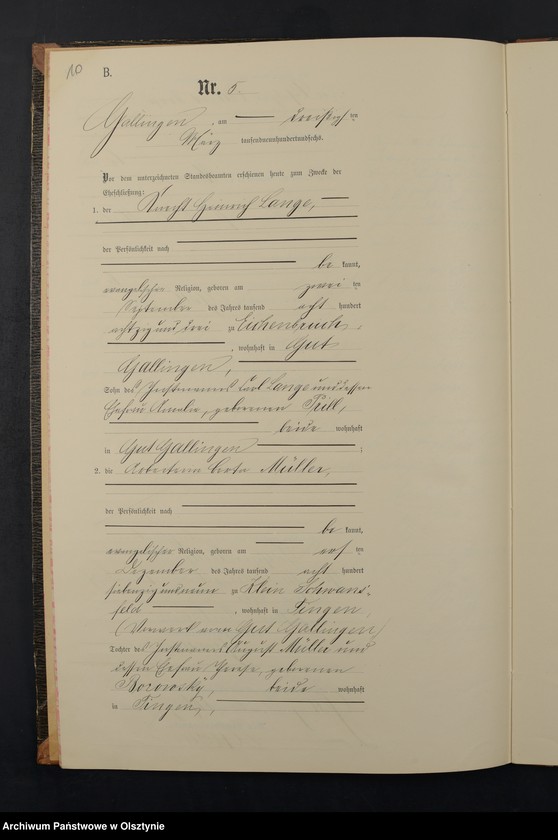 10
B.
Nr. 5.
Gallingen, am ten
März tausendneunhundertundsechs.
Vor dem unterzeichneten Standesbeamten erschienen heute zum Zwecke der
Eheschließung:
1. der Knecht Heinrich Lange,
der Persönlichkeit nach
be kannt,
evangelischer Religion, geboren am zwei ten
September des Jahres tausend acht hundert
achtzig und drei zu Eichenbruch,
, wohnhaft in Gut
Gallingen,
Sohn des Instmannes Carl Lange und dessen
Ehefrau Amalie, geborenen
beide wohnhaft
in Gut Gallingen ;
2. die Arbeiterin Berta Müller,
der Persönlichkeit nach
be kannt,
evangelischer Religion, geboren am elf ten
Dezember des Jahres tausend acht hundert
siebenzig und neun zu Klein Schwans-
feld , wohnhaft in Pingen,
(Vorwerk vom Gut Gallingen)
Tochter des Instmannes August Müller und
dessen Ehefrau geborenen
Borowsky, beide wohnhaft
in Pingen,
Archiwum Państwowe w Olsztynie